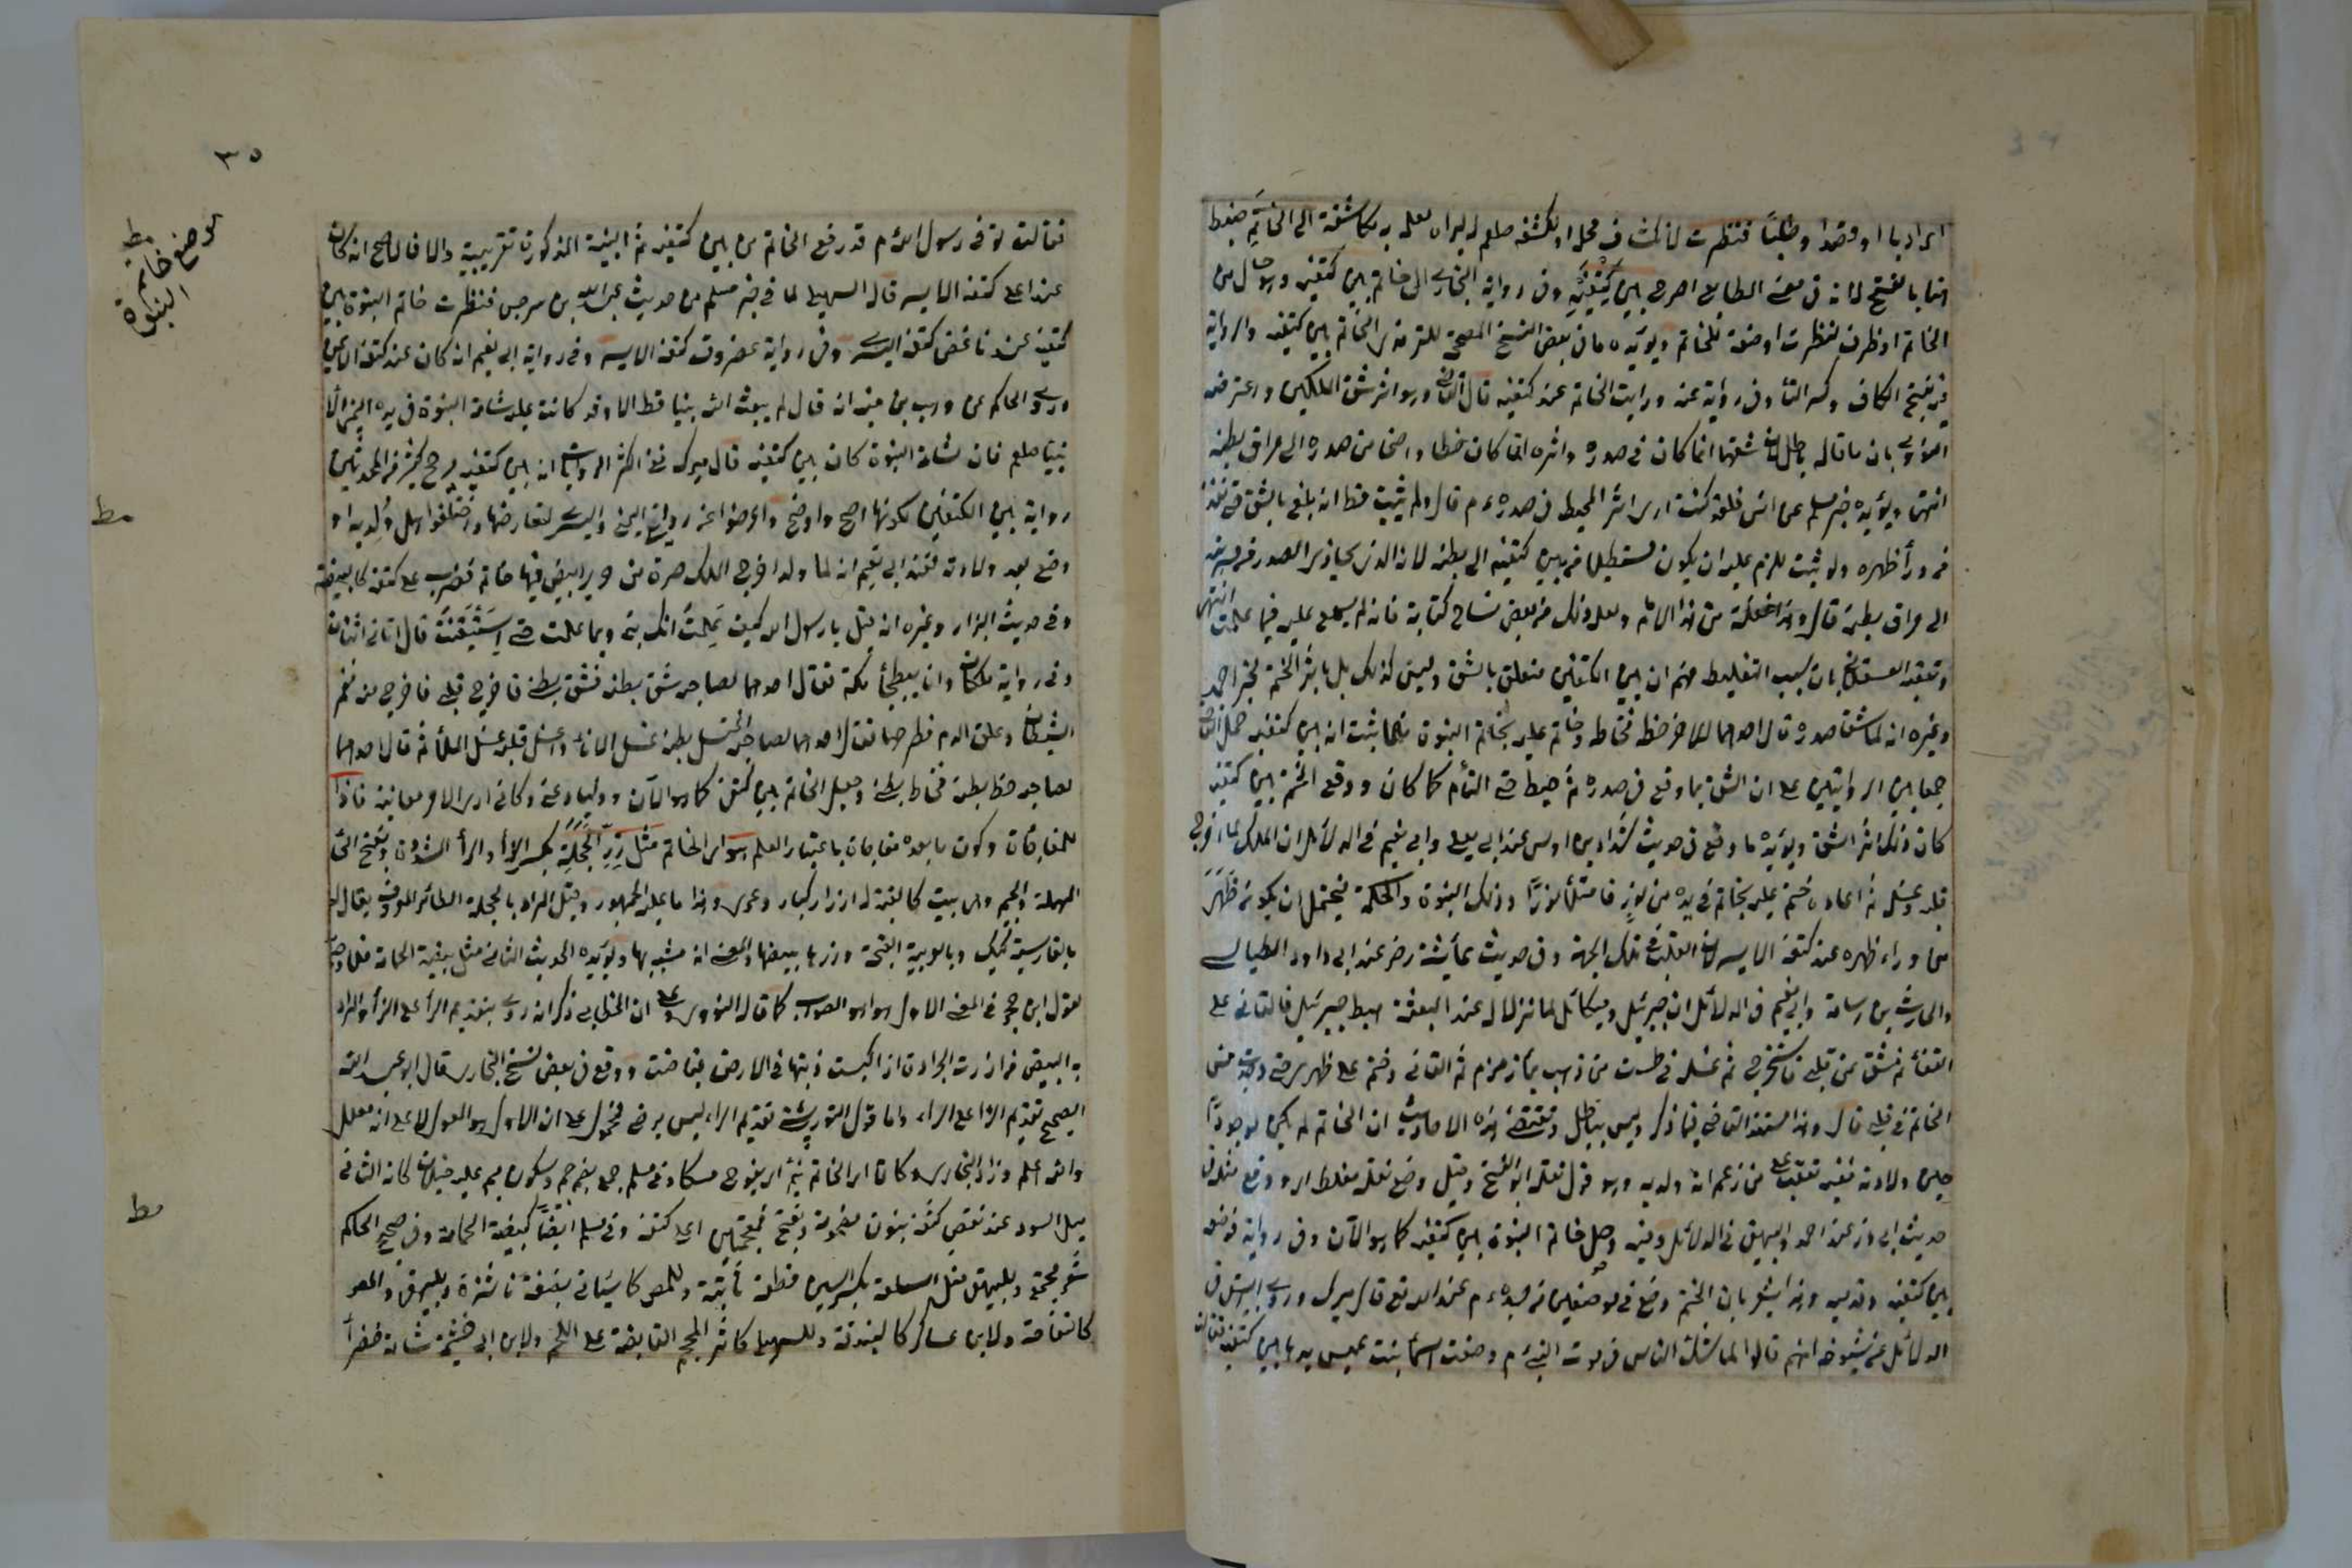 اي اراد بها او قصدا وطلبا فنظرت لانكشاف محله او لكشفه صلعم له ليراه لعلمه به مكاشفة الى الخاتم ضبط
هنا بالفتح لانه في معنى الطابع اصرح بين كتفيه وفي رواية البخاري الى خاتم بين كتفيه وهو حال من
الخاتم او ظرف لنظرت او صفة للخاتم ويؤيده ما في بعض النسخ المصححة للترمذي الخاتم بين كتفيه والرواية
فيه بفتح الكاف وكسر التاء وفي رواية عنه ورايت الخاتم عند كتفيه قال القاضي وهو اثر شق الملكين واعترضه
النووي بان ما قاله باطل لان شقهما انما كان في صدره واثره انما كان خطا واضحا من صدره الى مراق بطنه
انتهى ويؤيده خبر مسلم عن انس فلقد كنت ارى اثر المخيط في صدره ءم قال ولم يثبت قط انه بلغ بالشق حتى نفذ
من وراء ظهره ولو ثبت للزم عليه ان يكون مستطيلا من بين كتفيه الى بطنه لانه الذي يحاذي الصدر من سرته
الى مراق بطنه قال وهذه غفلة من هذا الامام ولعل ذلك من بعض نساخ كتابه فانه لم يسمع عليه فيما علمت انتهى
وتعقبه العسقلاني بان سبب التغليط فهم ان بين الكتفين متعلق بالشق وليس كذلك بل باثر الختم لخبر احمد
وغيره انه لما شق صدره قال احدهما للآخر خطه فخاطه وختم عليه بخاتم النبوة فلما ثبت انه بين كتفيه حمل القاضي
جمعا بين الروايتين على ان الشق لما وقع في صدره ثم خيط حتى التأم كما كان ووقع الختم بين كتفيه
كان ذلك اثر الشق ويؤيده ما وقع في حديث شداد بن اوس عند ابي يعلى وابي نعيم في الدلائل ان الملك لما اخرج
قلبه وغسله ثم اعاده ختم عليه بخاتم في يده من نور فامتلأ نورا وذلك النبوة والحكمة فيحتمل ان يكون ظهر
من وراء ظهره عند كتفه الايسر لان القلب في تلك الجهة وفي حديث عائشة رضي عند ابي داود الطيالسي
والحارث بن اسامة وابي نعيم في الدلائل ان جبرئيل وميكائل لما نزلا له عند البعثة هبط جبرئيل فالقاني على
القفا ثم شق عن قلبي فاستخرجه ثم غسله في طست من ذهب بماء زمزم ثم القاني وختم على ظهري حتى وجدت مس
الخاتم في قلبي قال وهذا مستند القاضي فيما ذكر وليس بباطل ومقتضى هذه الاحاديث ان الخاتم لم يكن موجودا
حين ولادته ففيه تعقب على من زعم انه ولد به وهو قول نقله ابو الفتح وقيل وضع نقله مغلطاي ووقع مثله في
حديث ابي ذر عند احمد والبيهقي في الدلائل وفيه وجعل خاتم النبوة بين كتفيه كما هو الآن وفي رواية فوضعه
بين كتفيه وثدييه وهذا يشعر بان الختم وضع في موضعين من جسده ءم عند الله تع قال ميرك وروى البيهقي في
الدلائل عن شيوخه انهم قالوا لما شك الناس في موت النبي ءم وضعت اسماء بنت عميس يدها بين كتفيه فقالت
٣٥
موضع خاتم النبوة
مط
فقالت توفي رسول الله ءم قد رفع الخاتم من بين كتفيه ثم البينية المذكورة تقريبية والا فالاصح انه كان
عند اعلى كتفه الايسر قاله السهيلي لما في خبر مسلم من حديث عبد الله بن سرجس فنظرت خاتم النبوة بين
كتفيه عند ناغض كتفه اليسرى وفي رواية غضروف كتفه الايسر وفي رواية ابي نعيم انه كان عند كتفه الايمن
وروى الحاكم عن وهب بن منبه انه قال لم يبعث الله نبيا قط الا وقد كانت عليه شامة النبوة في يده اليمنى الا
نبينا صلعم فان شامة النبوة كان بين كتفيه قال ميرك ففي اكثر الروايات انه بين كتفيه ورجح كثير من المحدثين
رواية بين الكتفين لكونها اصح واوضح واعرضوا عن روايتي اليمنى واليسرى لتعارضها واختلفوا هل ولد به او
مط
وضع بعد ولادته فعند ابي نعيم انه لما ولد اخرج الملك صرة من حرير ابيض فيها خاتم فضرب على كتفه كالبيضة
وفي حديث البزار وغيره انه قيل يا رسول الله كيف علمت انك نبي وبما علمت حتى استيقنت قال اتاني اثنان
وفي رواية ملكان وانا ببطحاء مكة فقال احدهما لصاحبه شق بطنه فشق بطني فاخرج قلبي فاخرج منه مغمز
الشيطان وعلق الدم فطرحهما فقال احدهما لصاحبه اغسل بطنه غسل الاناء واغسل قلبه غسل الملاء ثم قال احدهما
لصاحبه خط بطنه فخاط بطني وجعل الخاتم بين كتفي كما هو الآن ووليا عني وكاني ارى الامر معاينة فاذا
للمفاجاة وكون ما بعده مفاجاة باعتبار العلم هو اي الخاتم مثل زر الحجلة بكسر الزاء والراء المشددة وبفتح الحاء
المهملة والجيم وهي بيت كالقبة له ازرار كبار وعرى وهذا ما عليه الجمهور وقيل المراد بالحجلة الطائر المعروف يقال له
بالفارسية كبك وبالعربية القبجة وزرها بيضها والمعنى انه مشبه بها ويؤيده الحديث الثاني مثل بيضة الحمامة فلا وجه
لقول ابن حجر في المعنى الاول هو الصواب كما قال النووي على ان الخطابي ذكر انه روي بتقديم الراء على الزاء والمراد
به البيض من ارزت الجرادة اذا كبست ذنبها في الارض فباضت ووقع في بعض نسخ البخاري قال ابو عبد الله
الصحيح تقديم الزاء على الراء واما قول التوربشتي تقديم الراء ليس بمرضي فمحمول على ان الاول هو المعول لا على انه معلل
والله اعلم وزاد البخاري وكان اي الخاتم ينم اي يفوح مسكا وفي مسلم جمع بضم جيم وسكون ميم عليه خيلان كانه الثآليل
مط
السود عند نغض كتفه بنون مضمومة وتفتح فمعجمتين اعلى كتفه وفي مسلم ايضا كبيضة الحمامة وفي صحيح الحاكم
شعر مجتمع وللبيهقي مثل السلعة بكسر السين قطعة ناتئة وللمص كما سيأتي بضعة ناشزة وللبيهقي والمص
كالتفاحة ولابن عساكر كالبندقة وللسهيلي كاثر المحجم القابضة على اللحم ولابن ابي خيثمة شامة خضراء